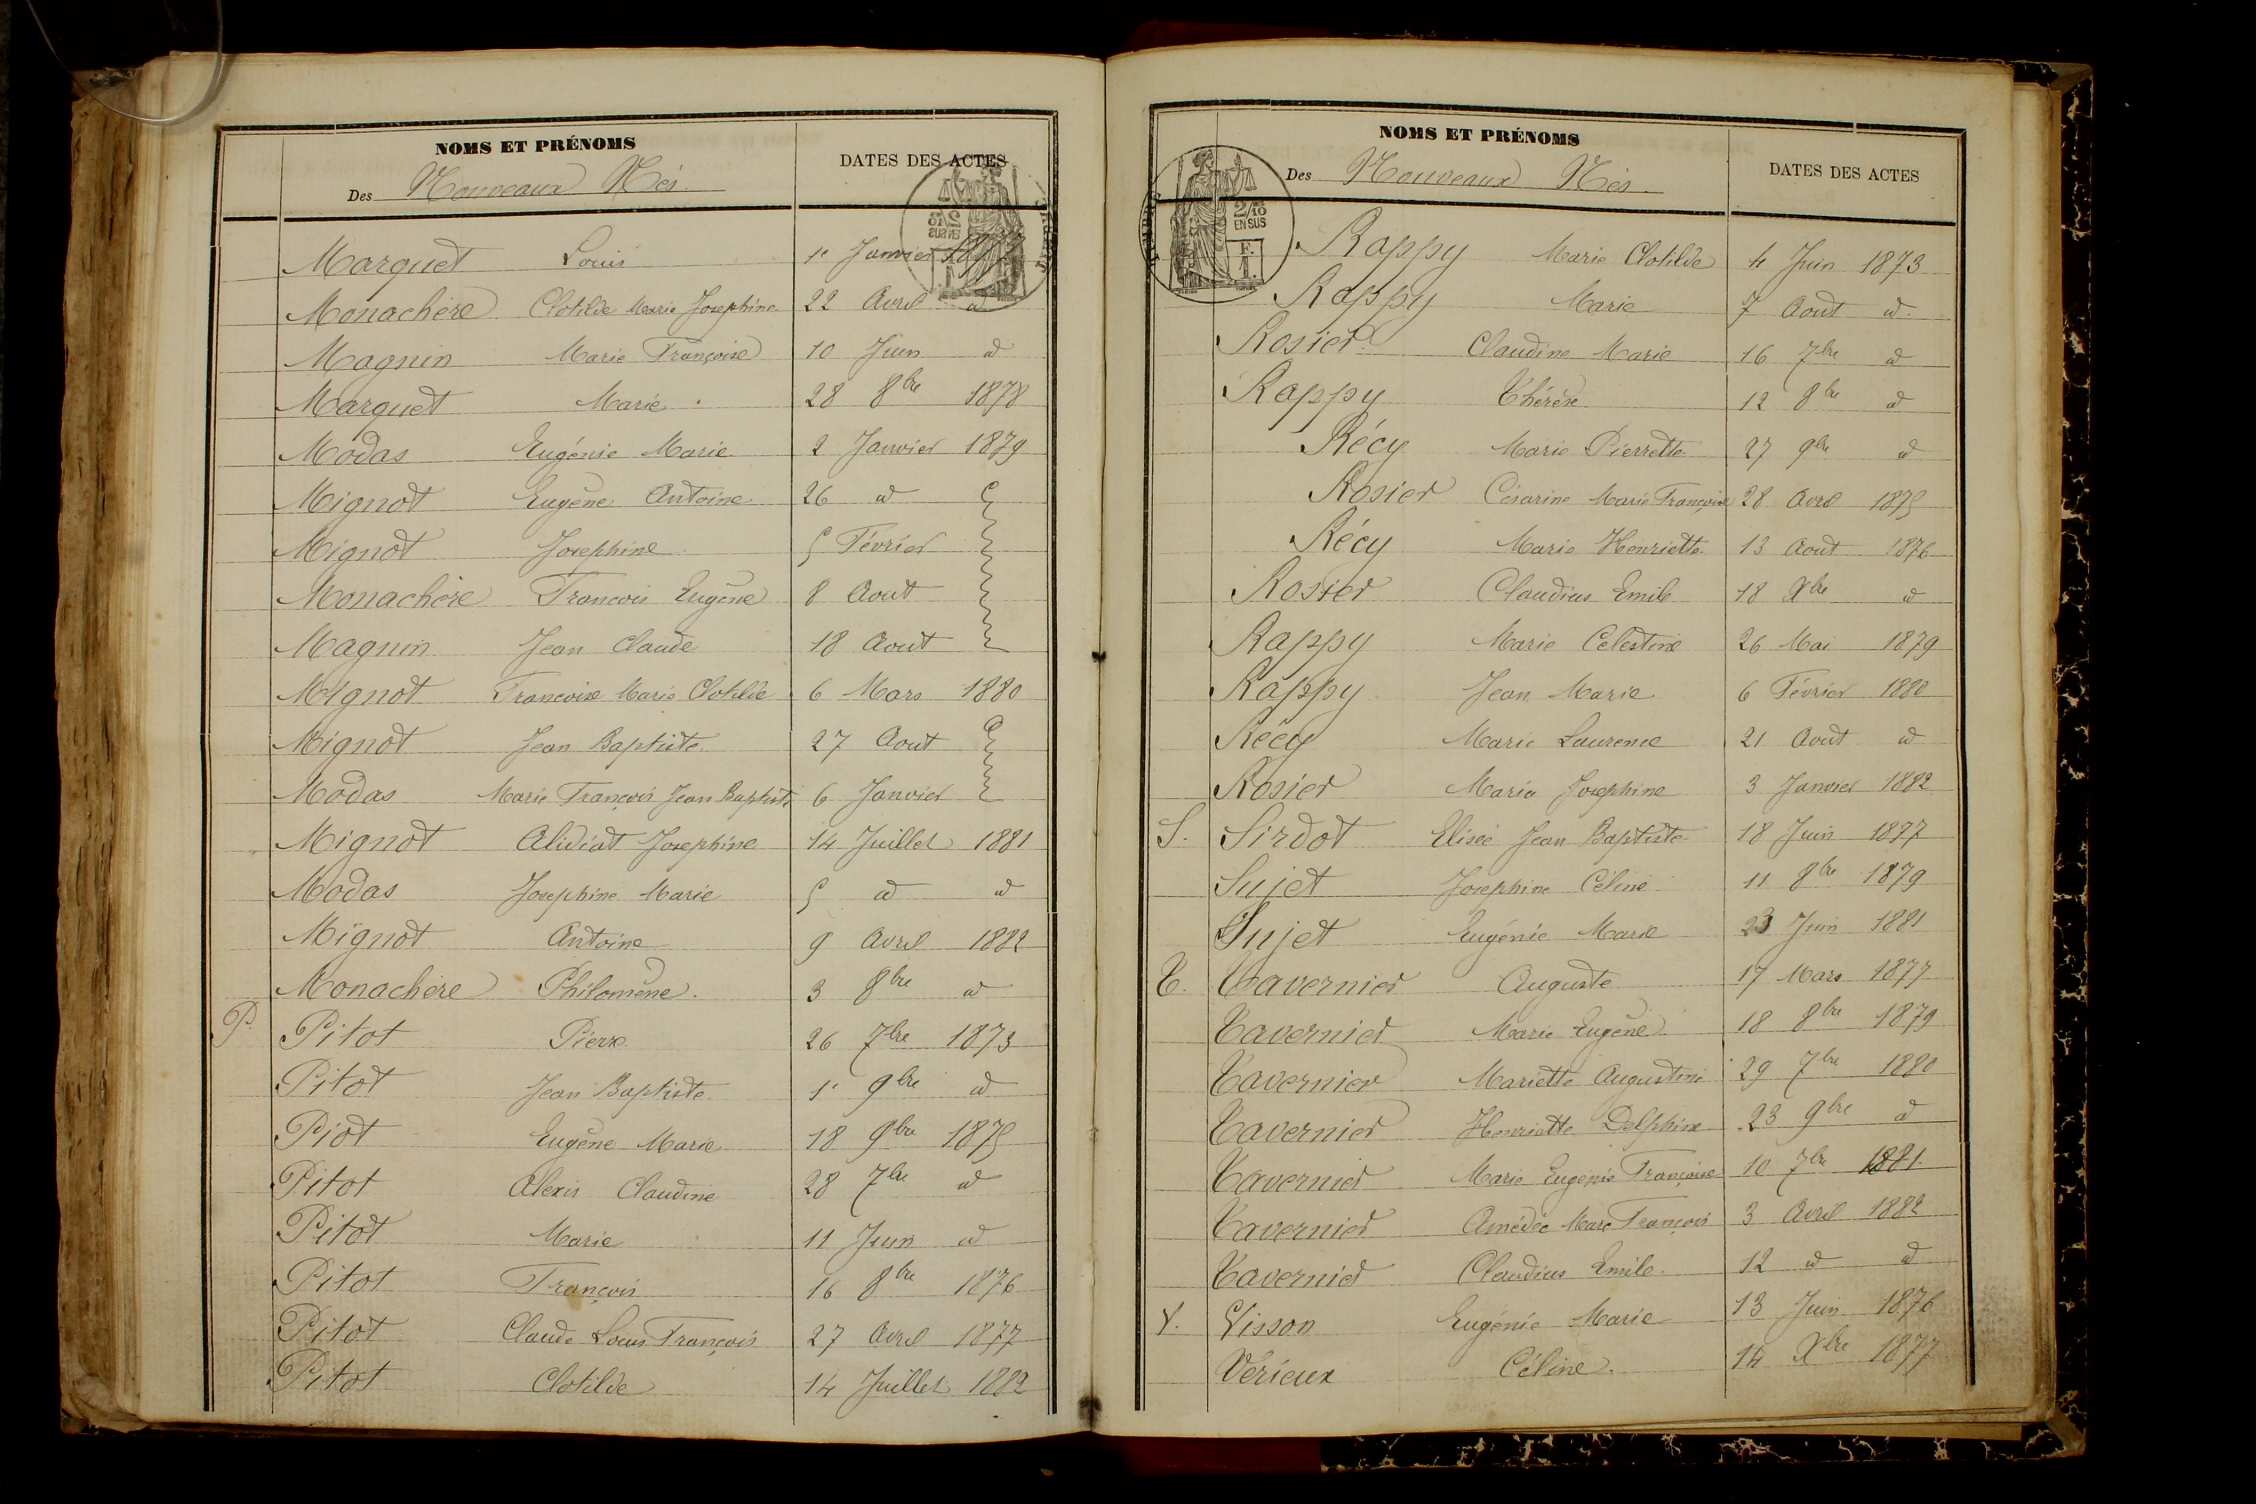 NOMS ET PRÉNOMS
Des Nouveaux Nés
DATES DES ACTES
Marquet Louis 1r Janvier
Monachère Clotilde Marie Josephine 22 Avril d
Magnin Marie Françoise 10 Juin d
Marquet Marie 28 8bre 1878
Modas Eugénie Marie 2 Janvier 1879
Mignot Eugène Antoine 26 d
Mignot Josephine 5 Février
Monachère François Eugène 8 Aout
Magnin Jean Claude 18 Aout
Mignot Françoise Marie Clotilde 6 Mars 1880
Mignot Jean Baptiste 27 Aout
Modas Marie François Jean Baptiste 6 Janvier
Mignot Josephine 14 Juillet 1881
Modas Josephine Marie 5 d d
Mignot Antoine 9 Avril 1882
Monachère Philomène. 3 8bre d
P. Pitot Pierre 26 7bre 1873
Pitot Jean Baptiste 1r 9bre d
Piot Eugène Marie 18 9bre 1875
Pitot Alexis Claudine 28 7bre d
Pitot Marie 11 Juin d
Pitot François 16 8bre 1876
Pitot Claude Louis François 27 Avril 1877
Pitot Clotilde 14 Juillet 1882
NOMS ET PRÉNOMS
Des Nouveaux Nés.
DATES DES ACTES
2/10
EN SUS
F.
1.
Rappy Marie Clotilde 4 Juin 1873
Rappy Marie 7 Aout d.
Rosier Claudine Marie 16 7bre d
Rappy Thérèse 12 8bre d
Récy Marie Pierrette 27 9bre d
Rosier Césarine Marie Françoise 28 Avril 1875
Récy Marie Henriette 13 Aout 1876
Rosier Claudius Emile 18 Xbre d
Rappy Marie Celestine 26 Mai 1879
Rappy Jean Marie 6 Février 1880
Récy Marie Laurence 21 Aout d
Rosier Maria Josephine 3 Janvier 1882
S. Sirdot Elisée Jean Baptiste 18 Juin 1877
Sujet Josephine Céline 11 8bre 1879
Sujet Eugénie Marie 23 Juin 1881
T. Tavernier Auguste 17 Mars 1877
Tavernier Marie Eugène 18 8bre 1879
Tavernier Mariette Augustine 29 7bre 1880
Tavernier Henriette Delphine 23 9bre d
Tavernier Marie Eugénie Françoise 10 7bre 1881.
Tavernier Amédée Marc François 3 Avril 1882
Tavernier Claudius Emile 12 d d
V. Visson Eugénie Marie 13 Juin 1876
Vérieux Céline. 14 Xbre 1877